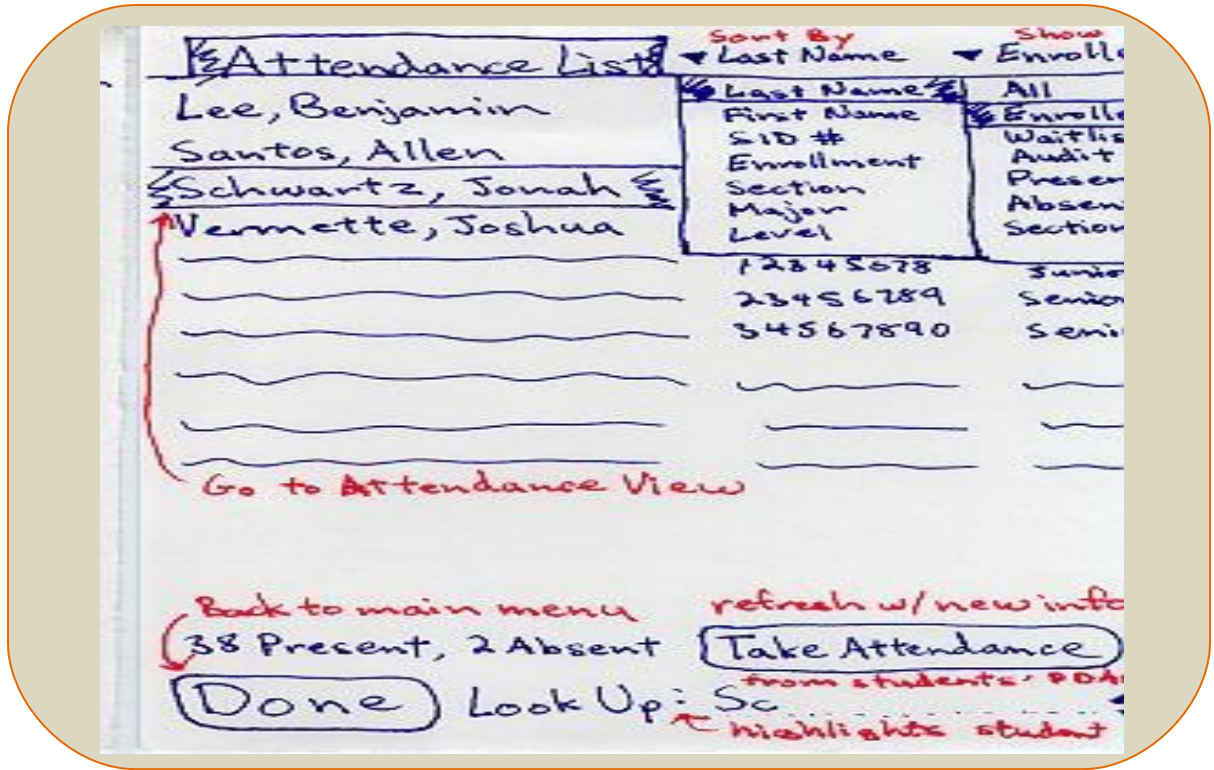 Sort By Show
Attendance List ▾ Last Name ▾ Enrolle
Lee, Benjamin
Santos, Allen
Schwartz, Jonah
Vermette, Joshua
Last Name
First Name
SID #
Enrollment
Section
Major
Level
All
Enrolle
Waitlis
Audit
Presen
Absen
Section
12345678 Junio
23456789 Senior
34567890 Seni
Go to Attendance View
Back to main menu refresh w/ new info
38 Present, 2 Absent Take Attendance
from students' PDA
Done Look Up: Sc
highlights student